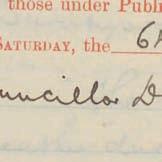 those under Publi
SATURDAY, the 6
uncillor D